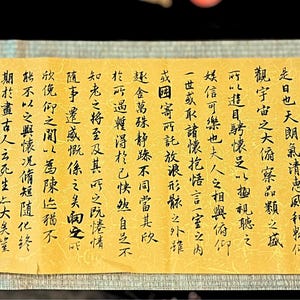 是日也天朗氣清惠風和暢
觀宇宙之大俯察品類之盛
所以遊目騁懷足以極視聽之
娛信可樂也夫人之相與俯仰
一世或取諸懷抱悟言一室之內
或因寄所託放浪形骸之外雖
趣舍萬殊靜躁不同當其欣
於所遇暫得於己快然自足不
知老之將至及其所之既惓情
隨事遷感慨係之矣向之所
欣俛仰之間以為陳迹猶不
能不以之興懷况脩短隨化終
期於盡古人云死生亦大矣豈